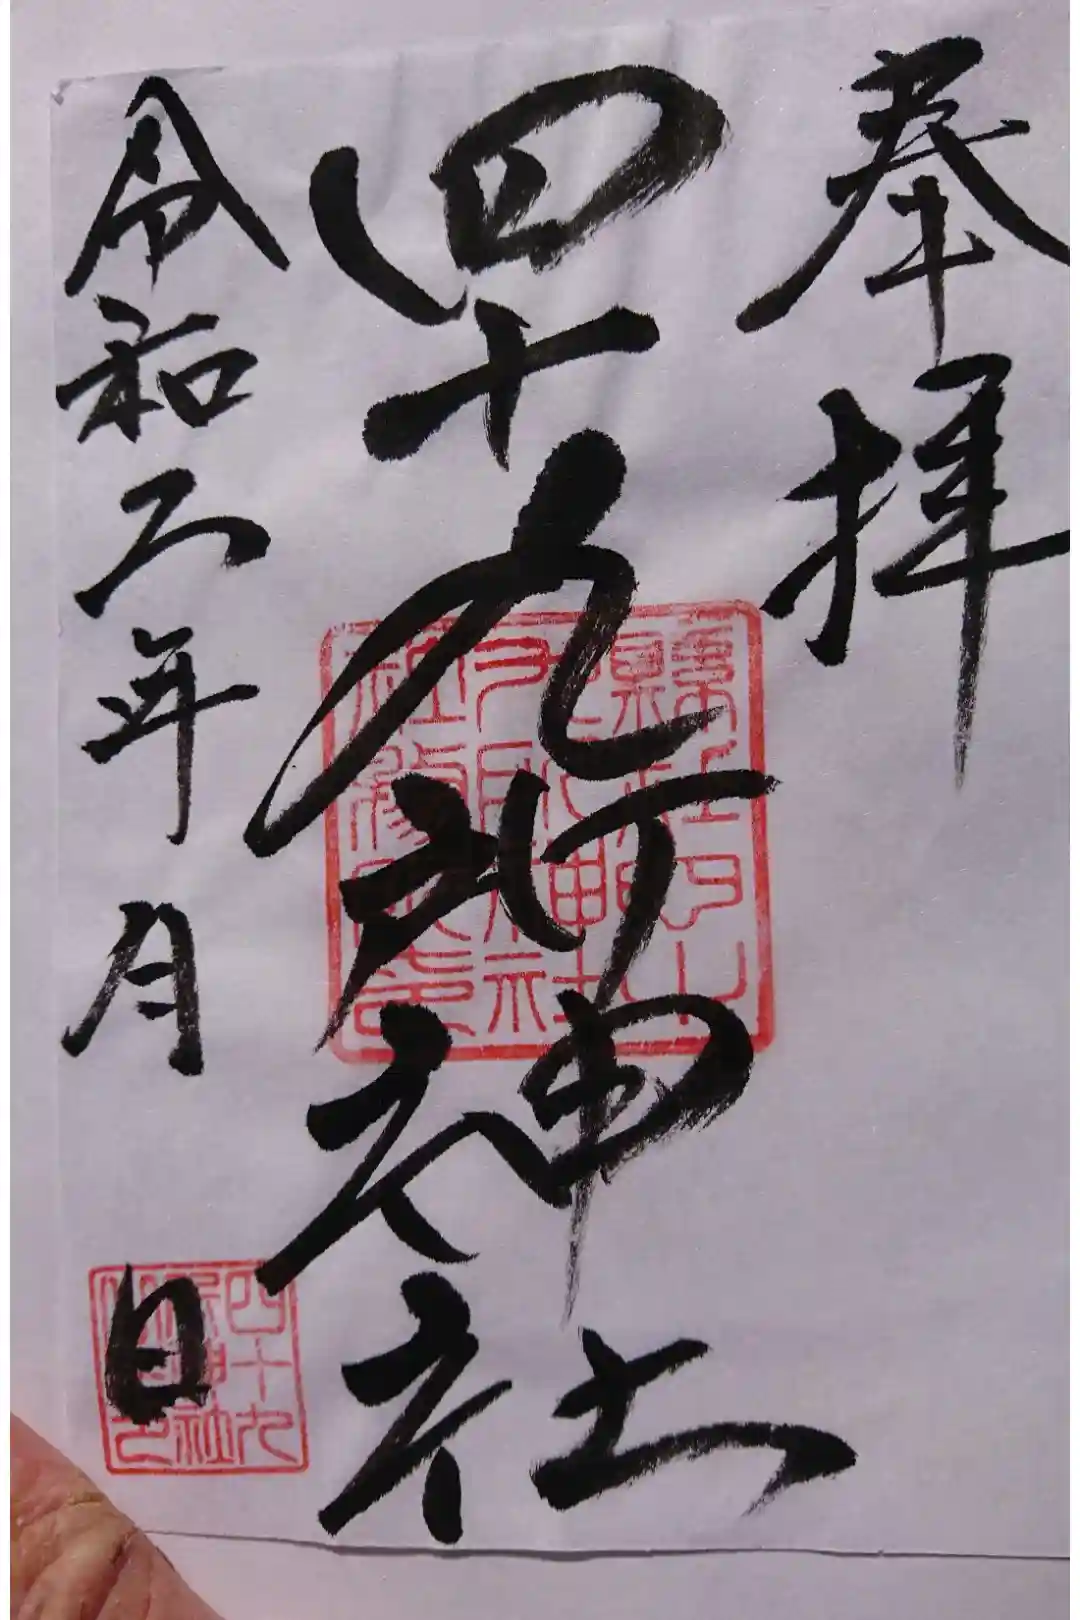 奉拝
四十九所神社
令和二年 月 日
四十九
所神社